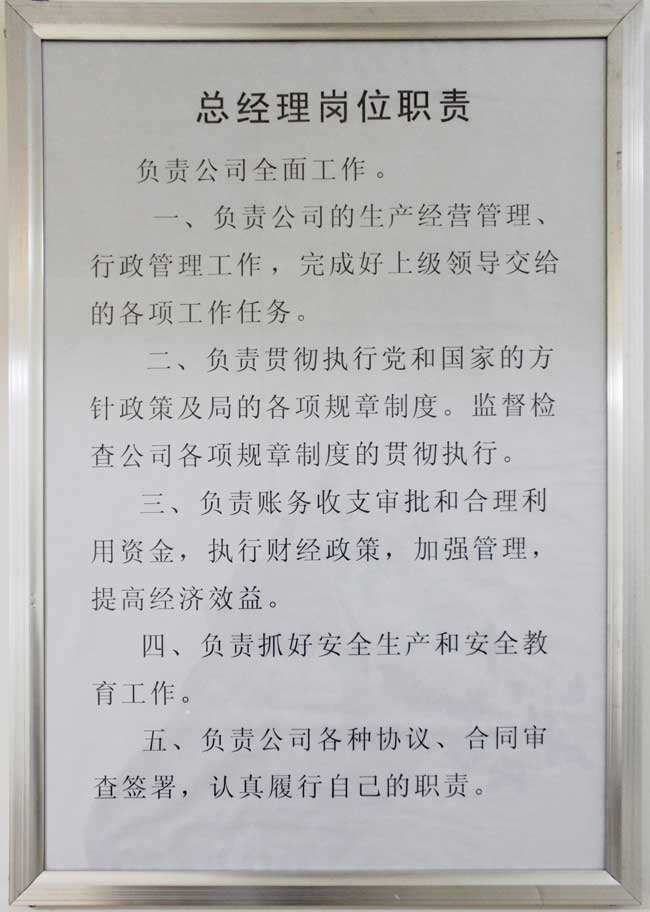 总经理岗位职责
负责公司全面工作。
一、负责公司的生产经营管理、
行政管理工作，完成好上级领导交给
的各项工作任务。
二、负责贯彻执行党和国家的方
针政策及局的各项规章制度。监督检
查公司各项规章制度的贯彻执行。
三、负责账务收支审批和合理利
用资金，执行财经政策，加强管理，
提高经济效益。
四、负责抓好安全生产和安全教
育工作。
五、负责公司各种协议、合同审
查签署，认真履行自己的职责。